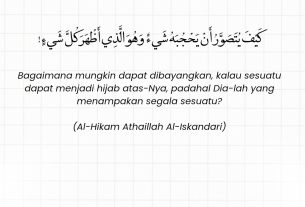 كَيْفَ يُتَصَوَّرُ أَنْ يَحْجُبَهُ شَيْءٌ وَهُوَ الَّذِي أَظْهَرَ كُلَّ شَيْءٍ!
Bagaimana mungkin dapat dibayangkan, kalau sesuatu
dapat menjadi hijab atas-Nya, padahal Dia-lah yang
menampakan segala sesuatu?
(Al-Hikam Athaillah Al-Iskandari)